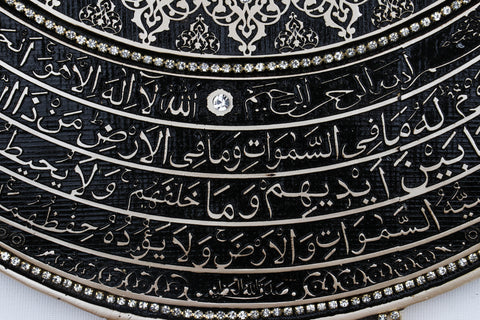 الرحمن الرحيم الله لا إله إلا هو
له ما في السموات وما في الارض من ذا
بين ايديهم وما خلفهم ولا يحيط
السموات والارض ولا يؤده حفظهم